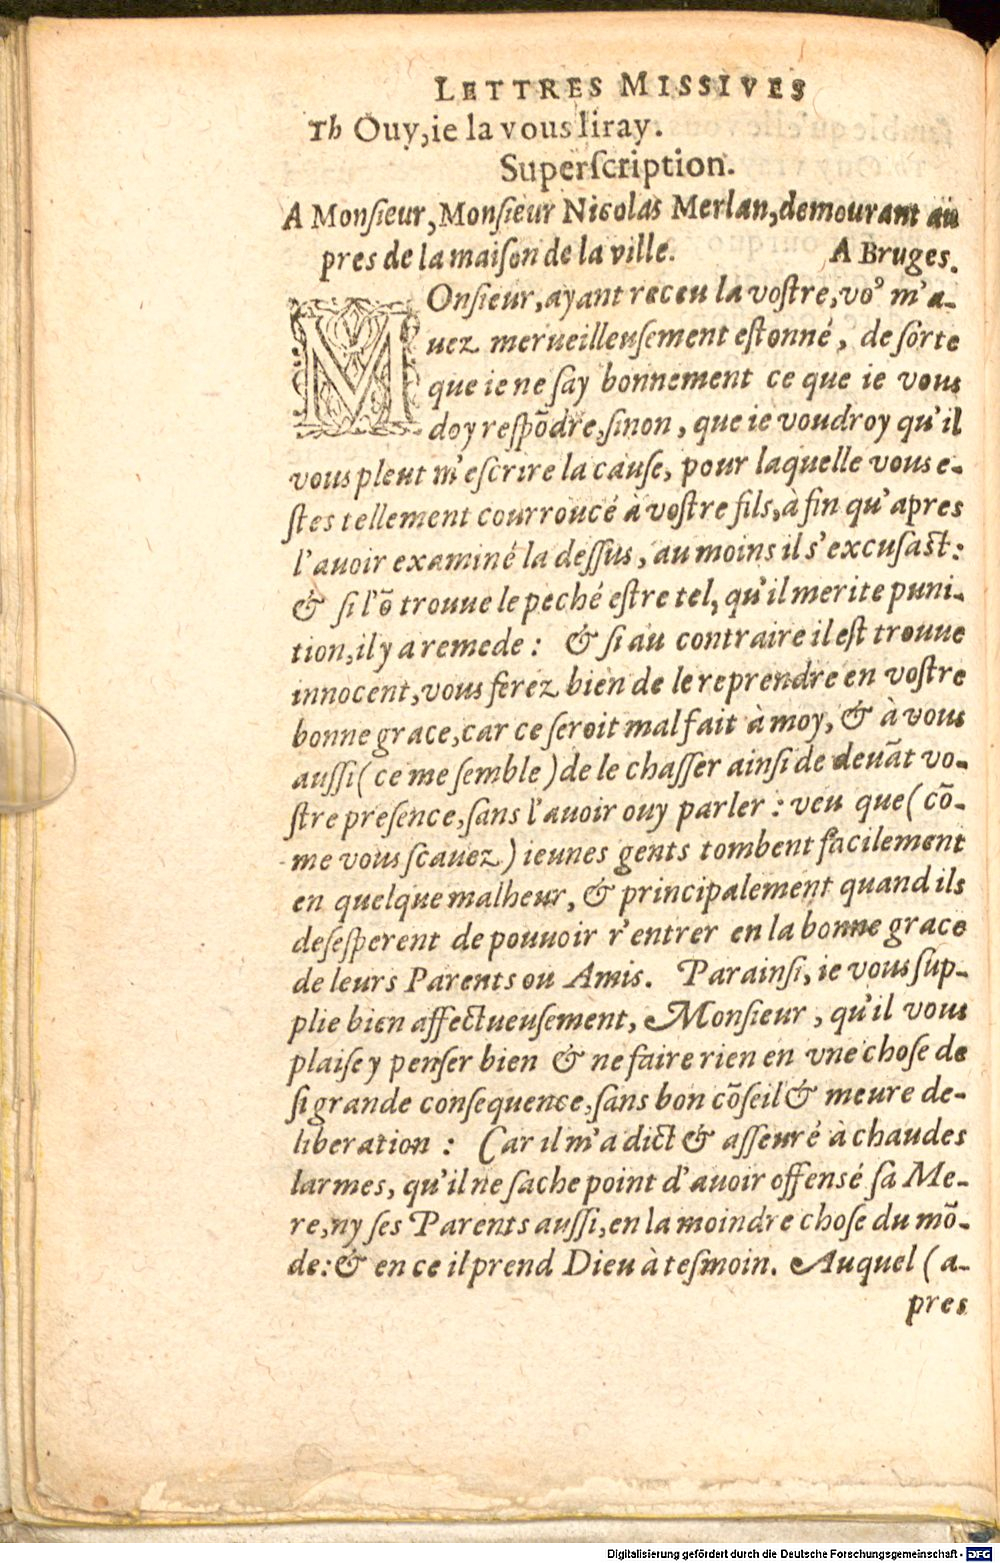 LETTRES MISSIVES
Th Ouy, ie la vous liray.
Superſcription.
A Monſieur, Monſieur Nicolas Merlan, demourant au
pres de la maiſon de la ville. A Bruges.
MOnſieur, ayant receu la voſtre, vo⁹ m'a-
uez merueilleuſement eſtonné, de ſorte
que ie ne ſay bonnement ce que ie vous
doy reſpõdre, ſinon, que ie voudroy qu'il
vous pleut m'eſcrire la cauſe, pour laquelle vous e-
ſtes tellement courroucé à voſtre fils, à fin qu'apres
l'auoir examiné la deſſus, au moins il s'excuſast:
& ſi l'õ trouue le peché eſtre tel, qu'il merite puni-
tion, il y a remede: & ſi au contraire il eſt trouue
innocent, vous ferez bien de le reprendre en voſtre
bonne grace, car ce ſeroit mal fait à moy, & à vous
auſſi (ce me ſemble) de le chaſſer ainſi de deuãt vo-
ſtre preſence, ſans l'auoir ouy parler: veu que (cõ-
me vous ſcauez) ieunes gents tombent facilement
en quelque malheur, & principalement quand ils
deſeſperent de pouuoir r'entrer en la bonne grace
de leurs Parents ou Amis. Parainſi, ie vous ſup-
plie bien affectueuſement, Monſieur, qu'il vous
plaiſe y penſer bien & ne faire rien en vne choſe de
ſi grande conſequence, ſans bon cõſeil & meure de-
liberation: Car il m'a dict & aſſeuré à chaudes
larmes, qu'il ne ſache point d'auoir offensé ſa Me-
re, ny ſes Parents auſſi, en la moindre choſe du mõ-
de: & en ce il prend Dieu à teſmoin. Auquel (a-
pres
Digitalisierung gefördert durch die Deutsche Forschungsgemeinschaft - DFG